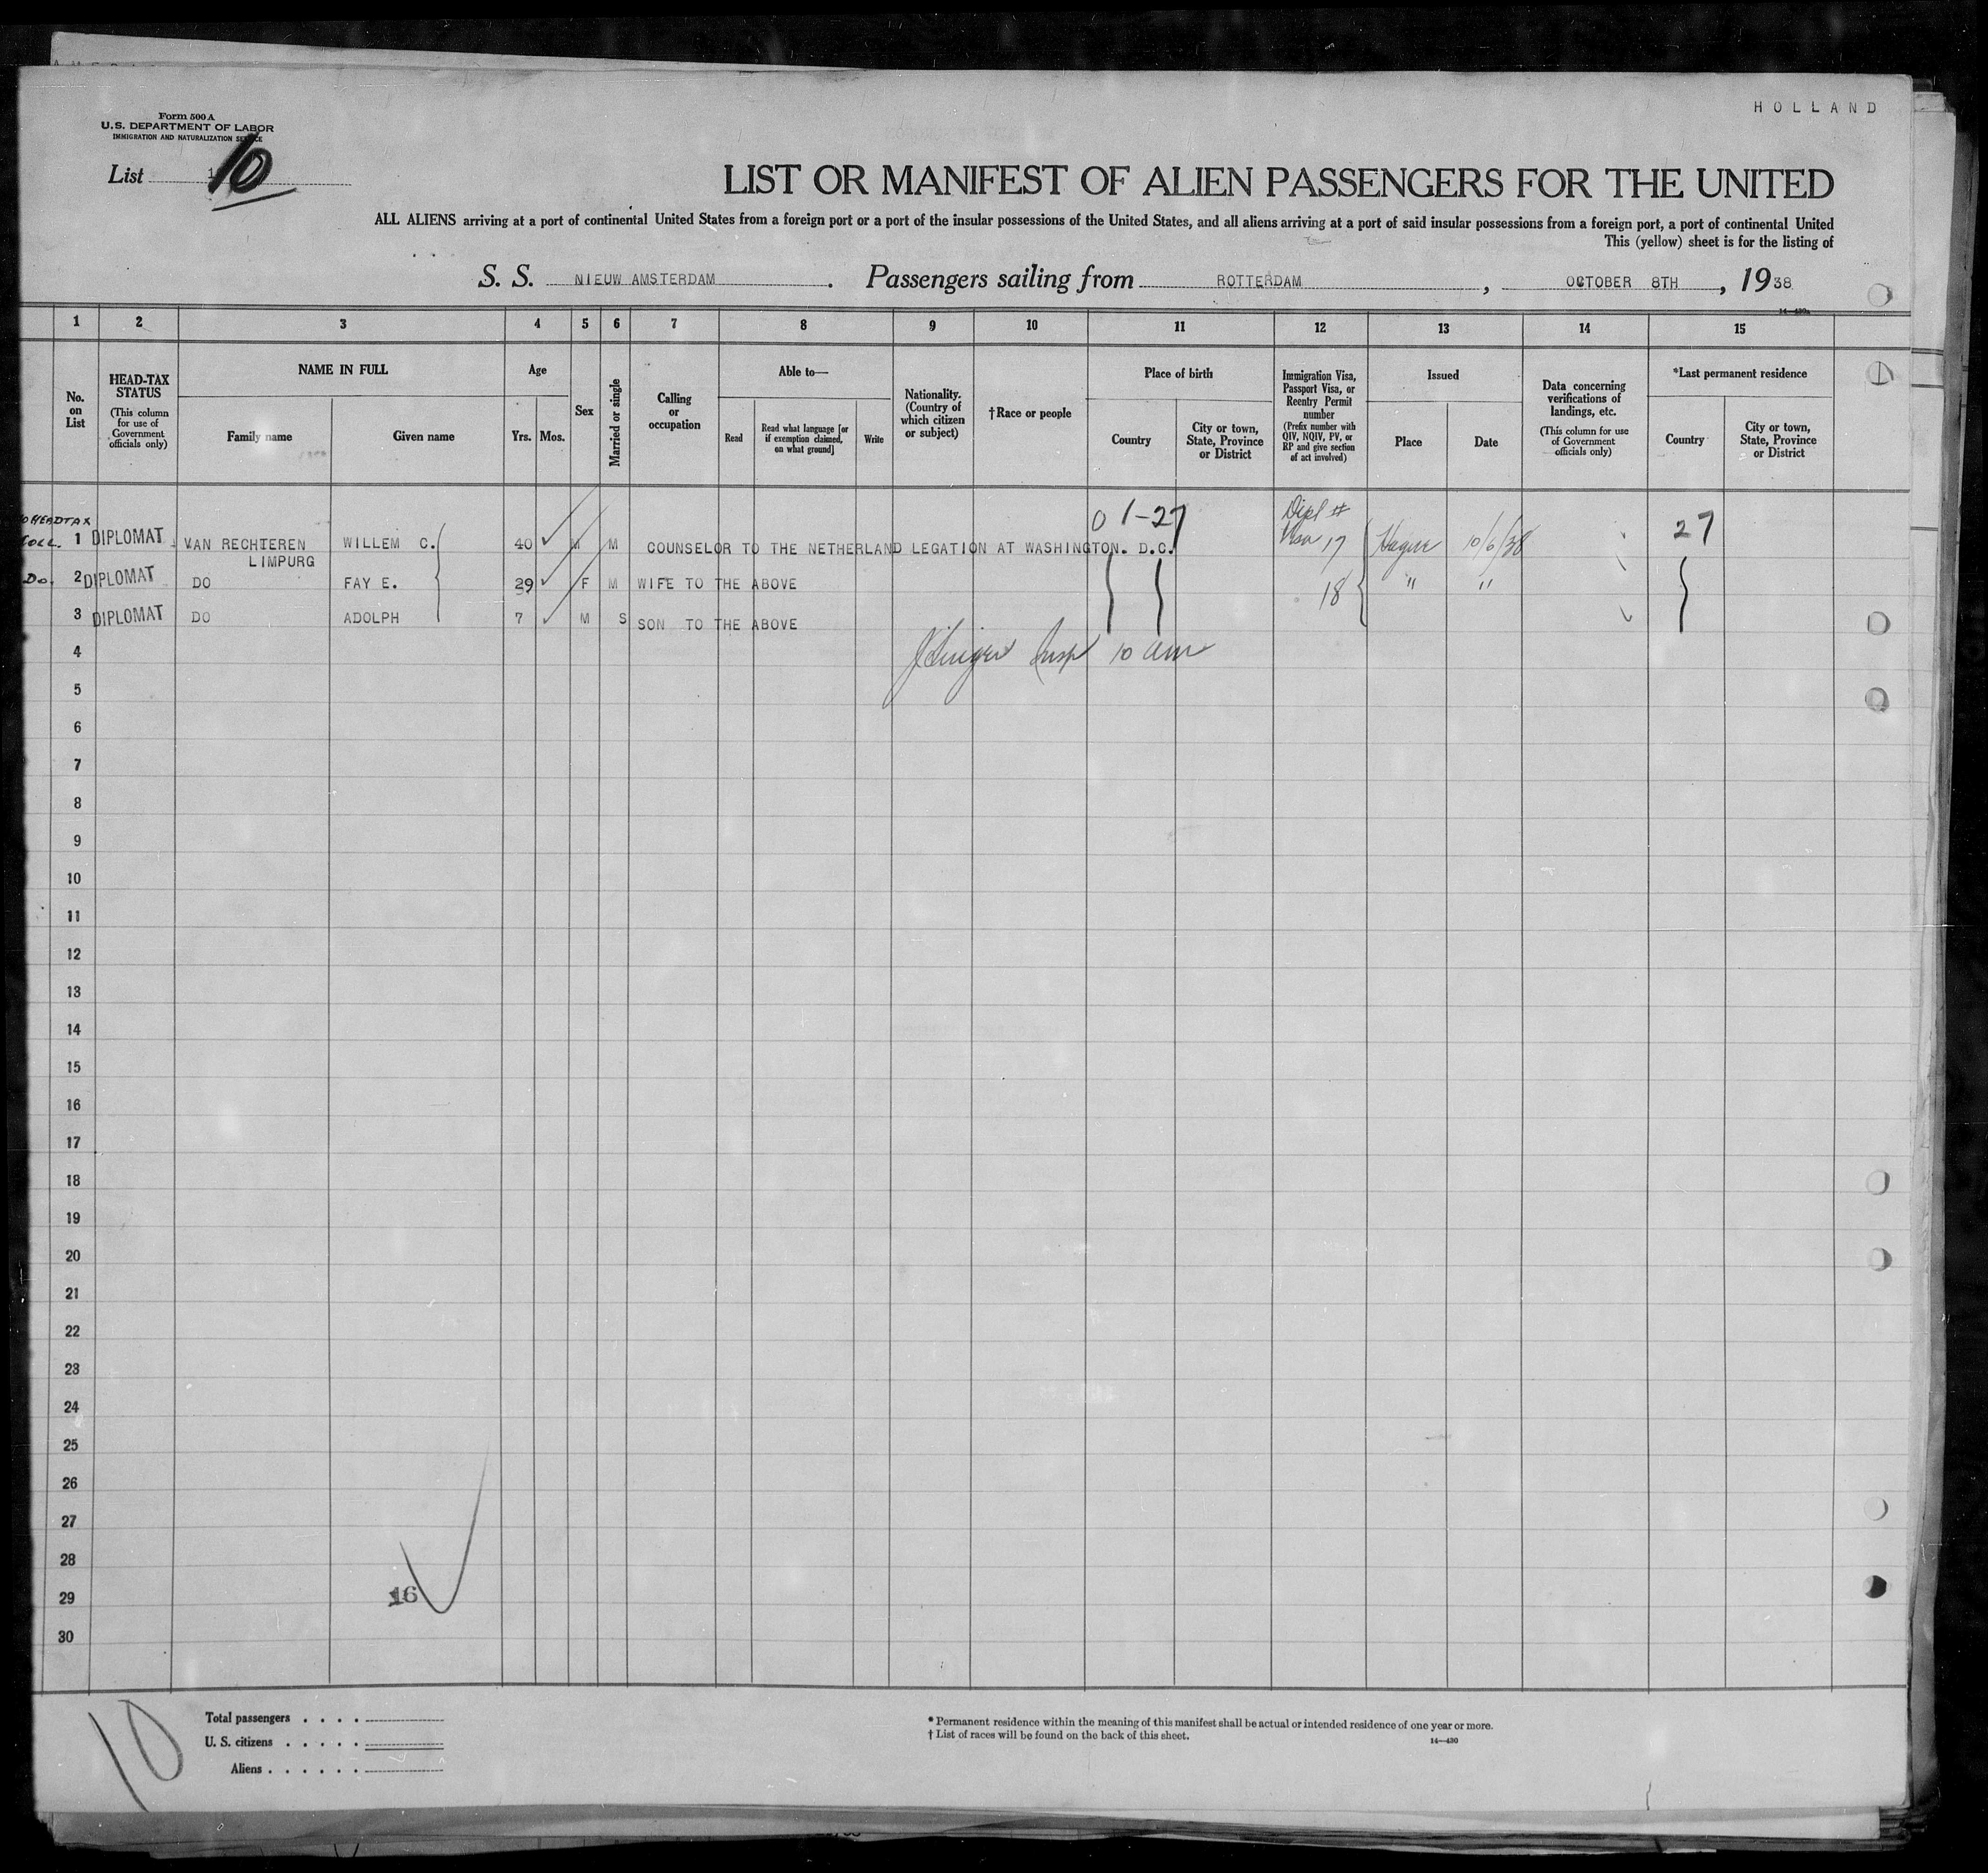 HOLLAND
Form 500 A
U.S. DEPARTMENT OF LABOR
IMMIGRATION AND NATURALIZATION SERVICE
List 10
LIST OR MANIFEST OF ALIEN PASSENGERS FOR THE UNITED
ALL ALIENS arriving at a port of continental United States from a foreign port or a port of the insular possessions of the United States, and all aliens arriving at a port of said insular possessions from a foreign port, a port of continental United
This (yellow) sheet is for the listing of
S. S. NIEUW AMSTERDAM. Passengers sailing from ROTTERDAM, OCTOBER 8TH, 1938
14—430a
1 2 3 4 5 6 7 8 9 10 11 12 13 14 15
No. on List
HEAD-TAX STATUS
(This column for use of Government officials only)
NAME IN FULL
Family name
Given name
Age
Yrs.
Mos.
Sex
Married or single
Calling or occupation
Able to—
Read
Read what language [or if exemption claimed, on what ground]
Write
Nationality. (Country of which citizen or subject)
†Race or people
Place of birth
Country
City or town, State, Province or District
Immigration Visa, Passport Visa, or Reentry Permit number
(Prefix number with QIV, NQIV, PV, or RP and give section of act involved)
Issued
Place
Date
Data concerning verifications of landings, etc.
(This column for use of Government officials only)
*Last permanent residence
Country
City or town, State, Province or District
HEADTAX
COLL. 1 DIPLOMAT VAN RECHTEREN LIMPURG WILLEM C. 40 M M COUNSELOR TO THE NETHERLAND LEGATION AT WASHINGTON. D.C. 0 1-27 Dipl # Visa 17 Hague 10/6/38 27
Do. 2 DIPLOMAT DO FAY E. 29 F M WIFE TO THE ABOVE 18 " "
3 DIPLOMAT DO ADOLPH 7 M S SON TO THE ABOVE
4 Insp 10 am
5
6
7
8
9
10
11
12
13
14
15
16
17
18
19
20
21
22
23
24
25
26
27
28
29
30
16
10
Total passengers . . . .
U. S. citizens . . . . .
Aliens . . . . . .
* Permanent residence within the meaning of this manifest shall be actual or intended residence of one year or more.
† List of races will be found on the back of this sheet.
14—430